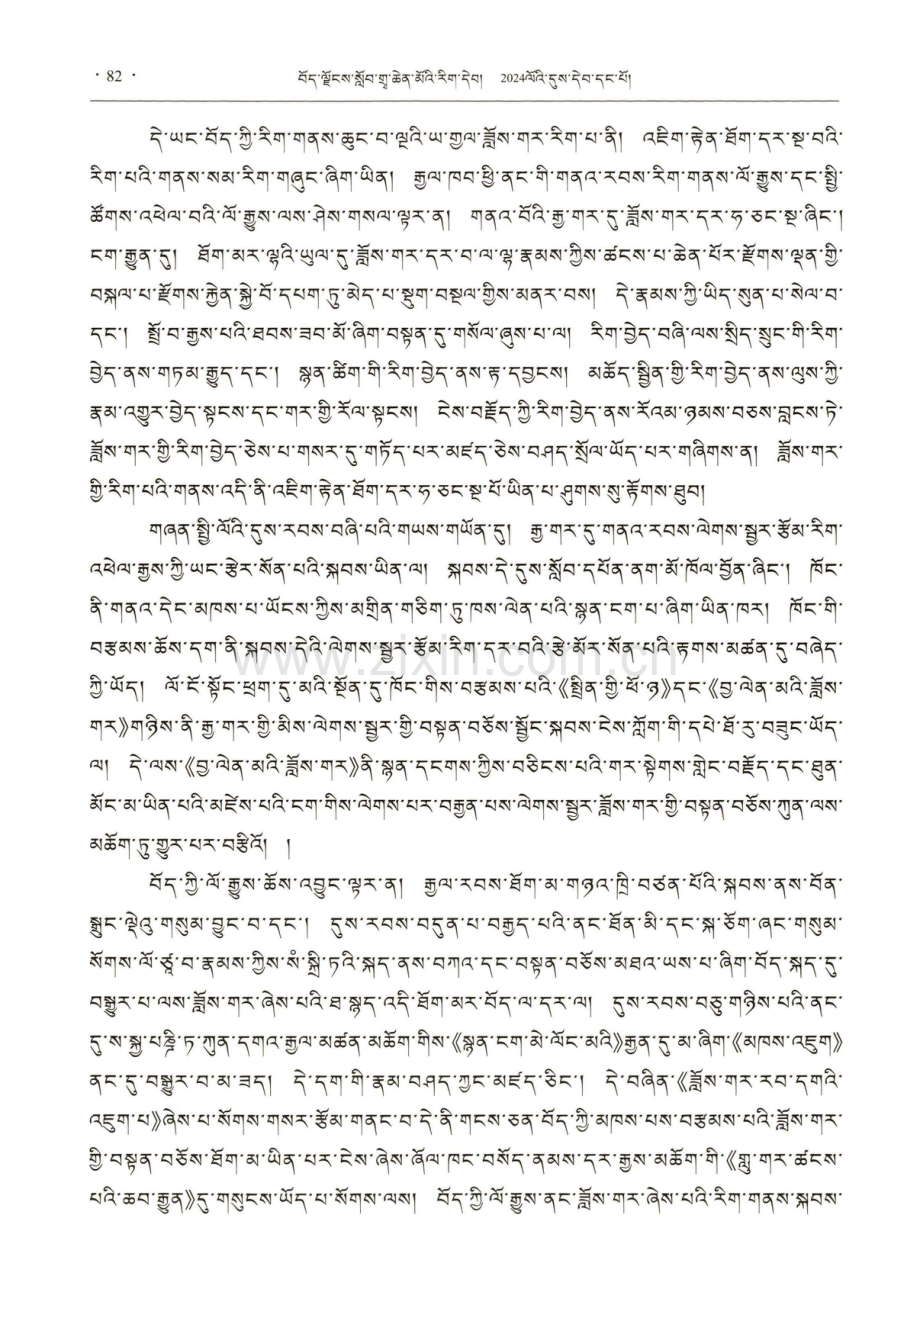 · 82 ·
བོད་ལྗོངས་སློབ་གྲྭ་ཆེན་མོའི་རིག་དེབ། 2024ལོའི་དུས་དེབ་དང་པོ།
དེ་ཡང་བོད་ཀྱི་རིག་གནས་ཆུང་བ་ལྔའི་ཡ་གྱལ་ཟློས་གར་རིག་པ་ནི། འཇིག་རྟེན་ཐོག་དར་སྔ་བའི་
རིག་པའི་གནས་སམ་རིག་གཞུང་ཞིག་ཡིན། རྒྱལ་ཁབ་ཕྱི་ནང་གི་གནའ་རབས་རིག་གནས་ལོ་རྒྱུས་དང་སྤྱི་
ཚོགས་འཕེལ་བའི་ལོ་རྒྱུས་ལས་ཤེས་གསལ་ལྟར་ན། གནའ་བོའི་རྒྱ་གར་དུ་ཟློས་གར་དར་ཧ་ཅང་སྔ་ཞིང་།
ངག་རྒྱུན་དུ། ཐོག་མར་ལྷའི་ཡུལ་དུ་ཟློས་གར་དར་བ་ལ་ལྷ་རྣམས་ཀྱིས་ཚངས་པ་ཆེན་པོར་རྫོགས་ལྡན་གྱི་
བསྐལ་པ་རྫོགས་རྐྱེན་སྐྱེ་བོ་དཔག་ཏུ་མེད་པ་སྡུག་བསྔལ་གྱིས་མནར་བས། དེ་རྣམས་ཀྱི་ཡིད་སུན་པ་སེལ་བ་
དང་། སྤྲོ་བ་རྒྱས་པའི་ཐབས་ཟབ་མོ་ཞིག་བསྟན་དུ་གསོལ་ཞུས་པ་ལ། རིག་བྱེད་བཞི་ལས་སྲིད་སྲུང་གི་རིག་
བྱེད་ནས་གཏམ་རྒྱུད་དང་། སྙན་ཚིག་གི་རིག་བྱེད་ནས་རྟ་དབྱངས། མཆོད་སྦྱིན་གྱི་རིག་བྱེད་ནས་ལུས་ཀྱི་
རྣམ་འགྱུར་བྱེད་སྟངས་དང་གར་གྱི་རོལ་སྟངས། ངེས་བརྗོད་ཀྱི་རིག་བྱེད་ནས་རོའམ་ཉམས་བཅས་བླངས་ཏེ་
ཟློས་གར་གྱི་རིག་བྱེད་ཅེས་པ་གསར་དུ་གཏོད་པར་མཛད་ཅེས་བཤད་སྲོལ་ཡོད་པར་གཞིགས་ན། ཟློས་གར་
གྱི་རིག་པའི་གནས་འདི་ནི་འཇིག་རྟེན་ཐོག་དར་ཧ་ཅང་སྔ་པོ་ཡིན་པ་ཤུགས་སུ་རྟོགས་ཐུབ།
གཞན་སྤྱི་ལོའི་དུས་རབས་བཞི་པའི་གཡས་གཡོན་དུ། རྒྱ་གར་དུ་གནའ་རབས་ལེགས་སྦྱར་རྩོམ་རིག་
འཕེལ་རྒྱས་ཀྱི་ཡང་རྩེར་སོན་པའི་སྐབས་ཡིན་ལ། སྐབས་དེ་དུས་སློབ་དཔོན་ནག་མོ་ཁོལ་བྱོན་ཞིང་། ཁོང་
ནི་གནའ་དེང་མཁས་པ་ཡོངས་ཀྱིས་མགྲིན་གཅིག་ཏུ་ཁས་ལེན་པའི་སྙན་ངག་པ་ཞིག་ཡིན་ཁར། ཁོང་གི་
བརྩམས་ཆོས་དག་ནི་སྐབས་དེའི་ལེགས་སྦྱར་རྩོམ་རིག་དར་བའི་རྩེ་མོར་སོན་པའི་རྟགས་མཚན་དུ་བཞེད་
ཀྱི་ཡོད། ལོ་ངོ་སྟོང་ཕྲག་དུ་མའི་སྔོན་དུ་ཁོང་གིས་བརྩམས་པའི《སྤྲིན་གྱི་ཕོ་ཉ》དང《བྱ་ལེན་མའི་ཟློས་
གར》གཉིས་ནི་རྒྱ་གར་གྱི་མིས་ལེགས་སྦྱར་གྱི་བསྟན་བཅོས་སྦྱོང་སྐབས་ངེས་ཀློག་གི་དཔེ་ཐོ་རུ་བཟུང་ཡོད་
ལ། དེ་ལས《བྱ་ལེན་མའི་ཟློས་གར》ནི་སྙན་དངགས་ཀྱིས་བཅིངས་པའི་གར་སྟེགས་གླེང་བརྗོད་དང་ཐུན་
མོང་མ་ཡིན་པའི་མཛེས་པའི་ངག་གིས་ལེགས་པར་བརྒྱན་པས་ལེགས་སྦྱར་ཟློས་གར་གྱི་བསྟན་བཅོས་ཀུན་ལས་
མཆོག་ཏུ་གྱུར་པར་བརྩིའོ། །
བོད་ཀྱི་ལོ་རྒྱུས་ཆོས་འབྱུང་ལྟར་ན། རྒྱལ་རབས་ཐོག་མ་གཉའ་ཁྲི་བཙན་པོའི་སྐབས་ནས་བོན་
སྒྲུང་ལྡེའུ་གསུམ་བྱུང་བ་དང་། དུས་རབས་བདུན་པ་བརྒྱད་པའི་ནང་ཐོན་མི་དང་སྐ་ཅོག་ཞང་གསུམ་
སོགས་ལོ་ཙཱ་བ་རྣམས་ཀྱིས་སཾ་སྐྲི་ཏའི་སྐད་ནས་བཀའ་དང་བསྟན་བཅོས་མཐའ་ཡས་པ་ཞིག་བོད་སྐད་དུ་
བསྒྱུར་པ་ལས་ཟློས་གར་ཞེས་པའི་ཐ་སྙད་འདི་ཐོག་མར་བོད་ལ་དར་ལ། དུས་རབས་བཅུ་གཉིས་པའི་ནང་
དུ་ས་སྐྱ་པཎྜི་ཏ་ཀུན་དགའ་རྒྱལ་མཚན་མཆོག་གིས《སྙན་ངག་མེ་ལོང་མའི》རྒྱན་དུ་མ་ཞིག《མཁས་འཇུག》
ནང་དུ་བསྒྱུར་བ་མ་ཟད། དེ་དག་གི་རྣམ་བཤད་ཀྱང་མཛད་ཅིང་། དེ་བཞིན《ཟློས་གར་རབ་དགའི་
འཇུག་པ》ཞེས་པ་སོགས་གསར་རྩོམ་གནང་བ་དེ་ནི་གངས་ཅན་བོད་ཀྱི་མཁས་པས་བརྩམས་པའི་ཟློས་གར་
གྱི་བསྟན་བཅོས་ཐོག་མ་ཡིན་པར་ངེས་ཞེས་ཞོལ་ཁང་བསོད་ནམས་དར་རྒྱས་མཆོག་གི《གླུ་གར་ཚངས་
པའི་ཆབ་རྒྱུན》དུ་གསུངས་ཡོད་པ་སོགས་ལས། བོད་ཀྱི་ལོ་རྒྱུས་ནང་ཟློས་གར་ཞེས་པའི་རིག་གནས་སྐབས་
www.zixin.com.cn